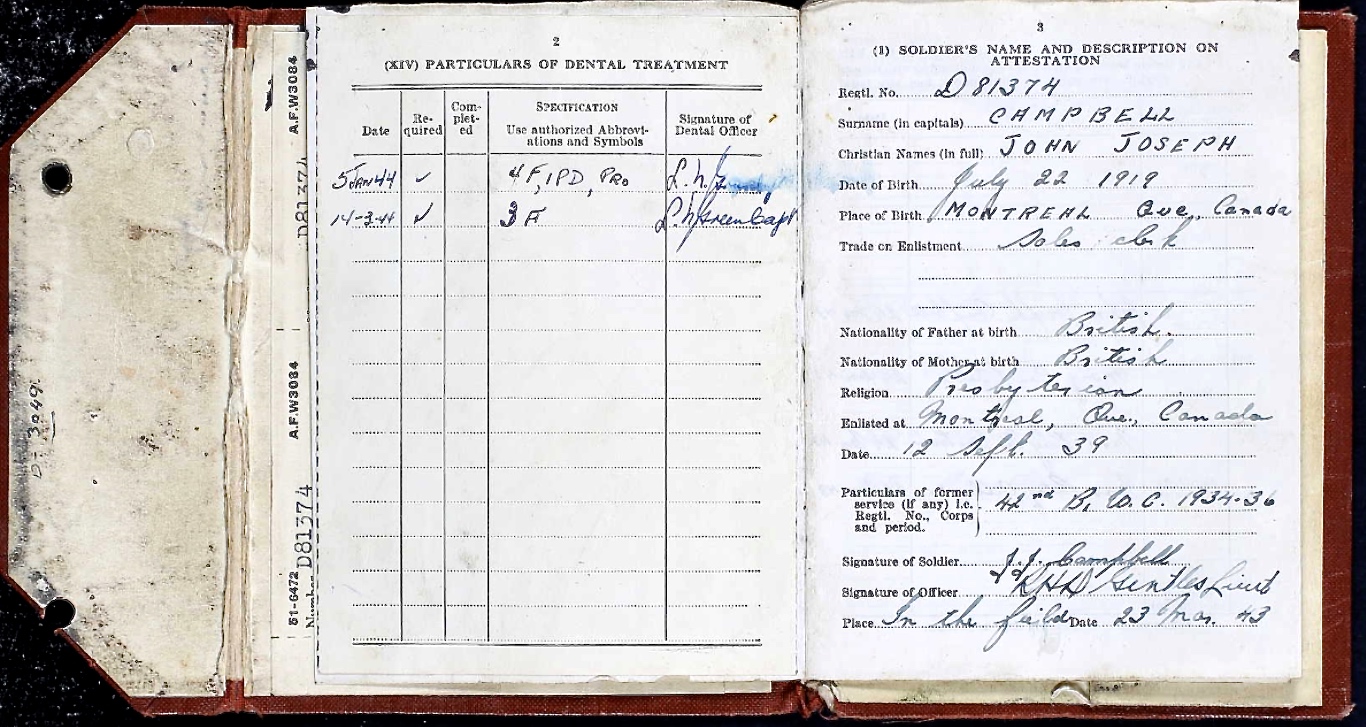 D-3049
A.F.W3084
D81374
A.F.W3084
51-6472
Number D81374
2
(XIV) PARTICULARS OF DENTAL TREATMENT
Date
Re-
quired
Com-
plet-
ed
SPECIFICATION
Use authorized Abbrevi-
ations and Symbols
Signature of
Dental Officer
5 JAN 44 ✓ 4 F, 1 PD, PRO L. N.
14-3-44 ✓ 3 F L. N. Green Capt
3
(I) SOLDIER'S NAME AND DESCRIPTION ON
ATTESTATION
Regtl. No. D 81374
Surname (in capitals) CAMPBELL
Christian Names (in full) JOHN JOSEPH
Date of Birth July 22 1919
Place of Birth MONTREAL Que, Canada
Trade on Enlistment Sales clerk
Nationality of Father at birth British.
Nationality of Mother at birth British
Religion Presbyterian
Enlisted at Montreal, Que., Canada
Date 12 Sept. 39
Particulars of former
service (if any) i.e. 42nd B. W. C. 1934-36
Regtl. No., Corps
and period.
Signature of Soldier J. J. Campbell
Signature of Officer Gentles Lieut
Place In the field Date 23 Mar. 43